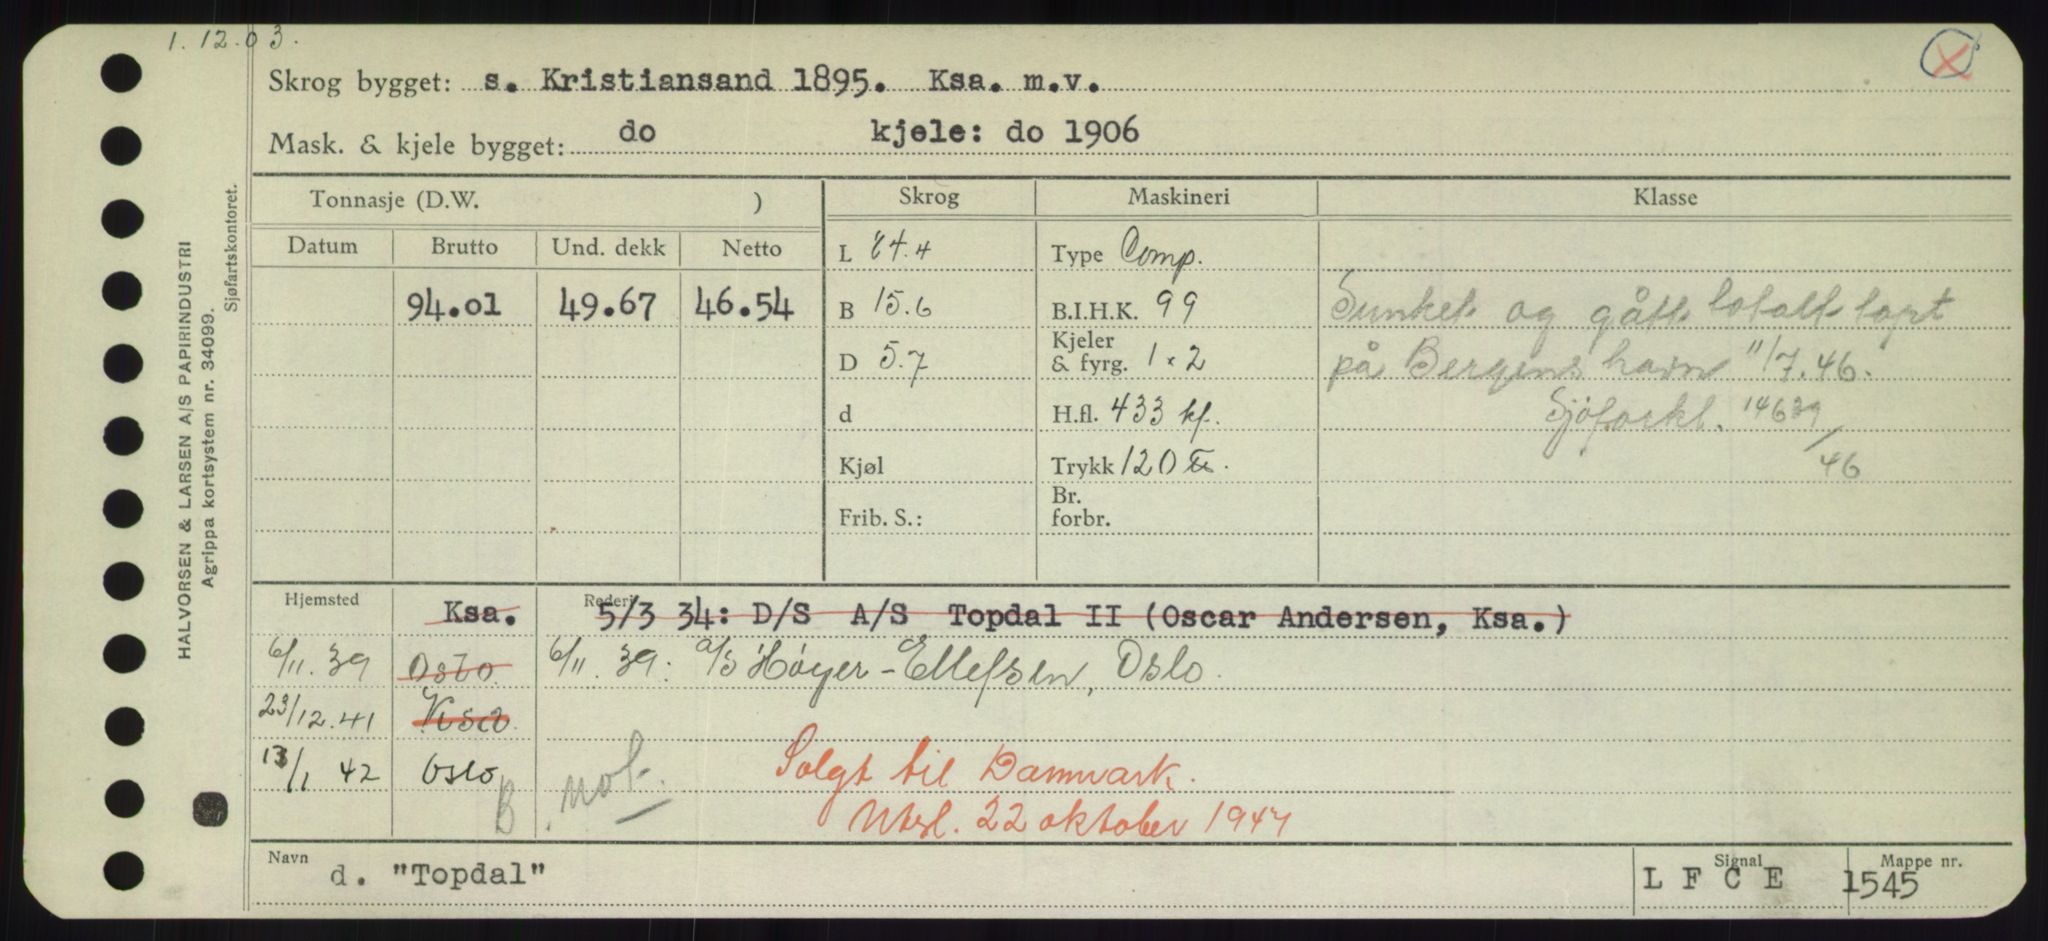 1. 12.03.
Skrog bygget: s. Kristiansand 1895. Ksa. m.v.
Mask. & kjele bygget: do kjele: do 1906
Tonnasje (D.W. ) Skrog Maskineri Klasse
Datum Brutto Und. dekk Netto
94.01 49.67 46.54
L 84.4
B 15.6
D 5.7
d
Kjøl
Frib. S.:
Type Comp.
B.I.H.K. 99
Kjeler
& fyrg. 1 x 2
H.fl. 433 kf.
Trykk 120
Br.
forbr.
Sunket og gått totalt tapt
på Bergens havn 11/7.46.
Sjøforkl. 14639/46
Hjemsted Ksa. Rederi 5/3 34: D/S A/S Topdal II (Oscar Andersen, Ksa.)
6/11. 39 Oslo 6/11. 39: A/S Høyer-Ellefsen, Oslo.
23/12.41 Ksa
13/1 42 Oslo B not. Solgt til Danmark.
Utsl. 22 oktober 1947
Navn d. "Topdal" Signal L F C E Mappe nr. 1545
HALVORSEN & LARSEN A/S PAPIRINDUSTRI
Agrippa kortsystem nr. 34099.
Sjøfartskontoret.